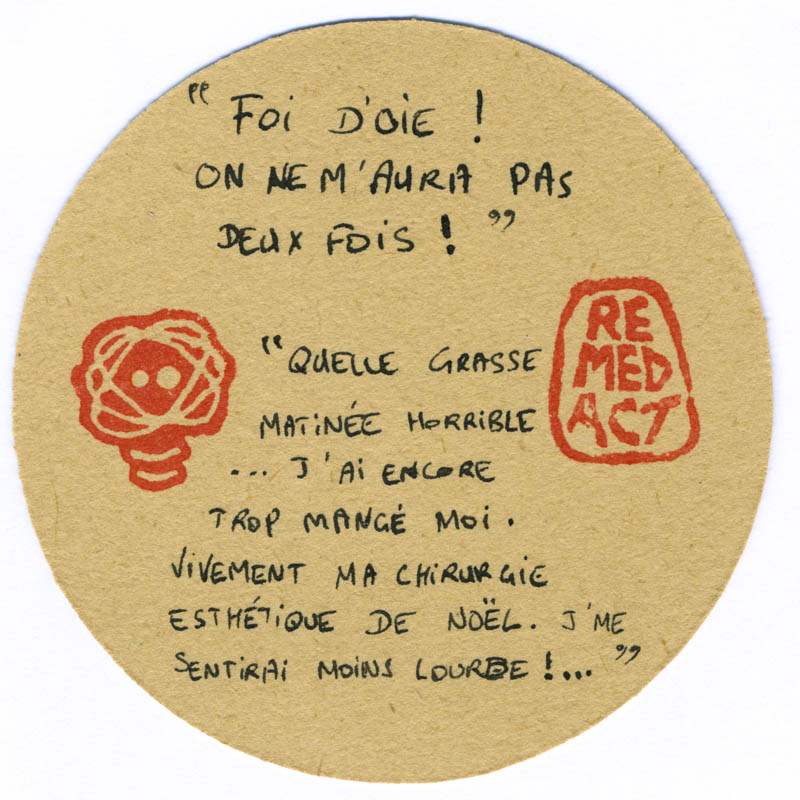 “ FOI D'OIE !
ON NE M'AURA PAS
DEUX FOIS ! ”
“QUELLE GRASSE
MATINÉE HORRIBLE
... J'AI ENCORE
TROP MANGÉ MOI.
VIVEMENT MA CHIRURGIE
ESTHÉTIQUE DE NOËL. J'ME
SENTIRAI MOINS LOURDE !... ”
RE
MED
ACT